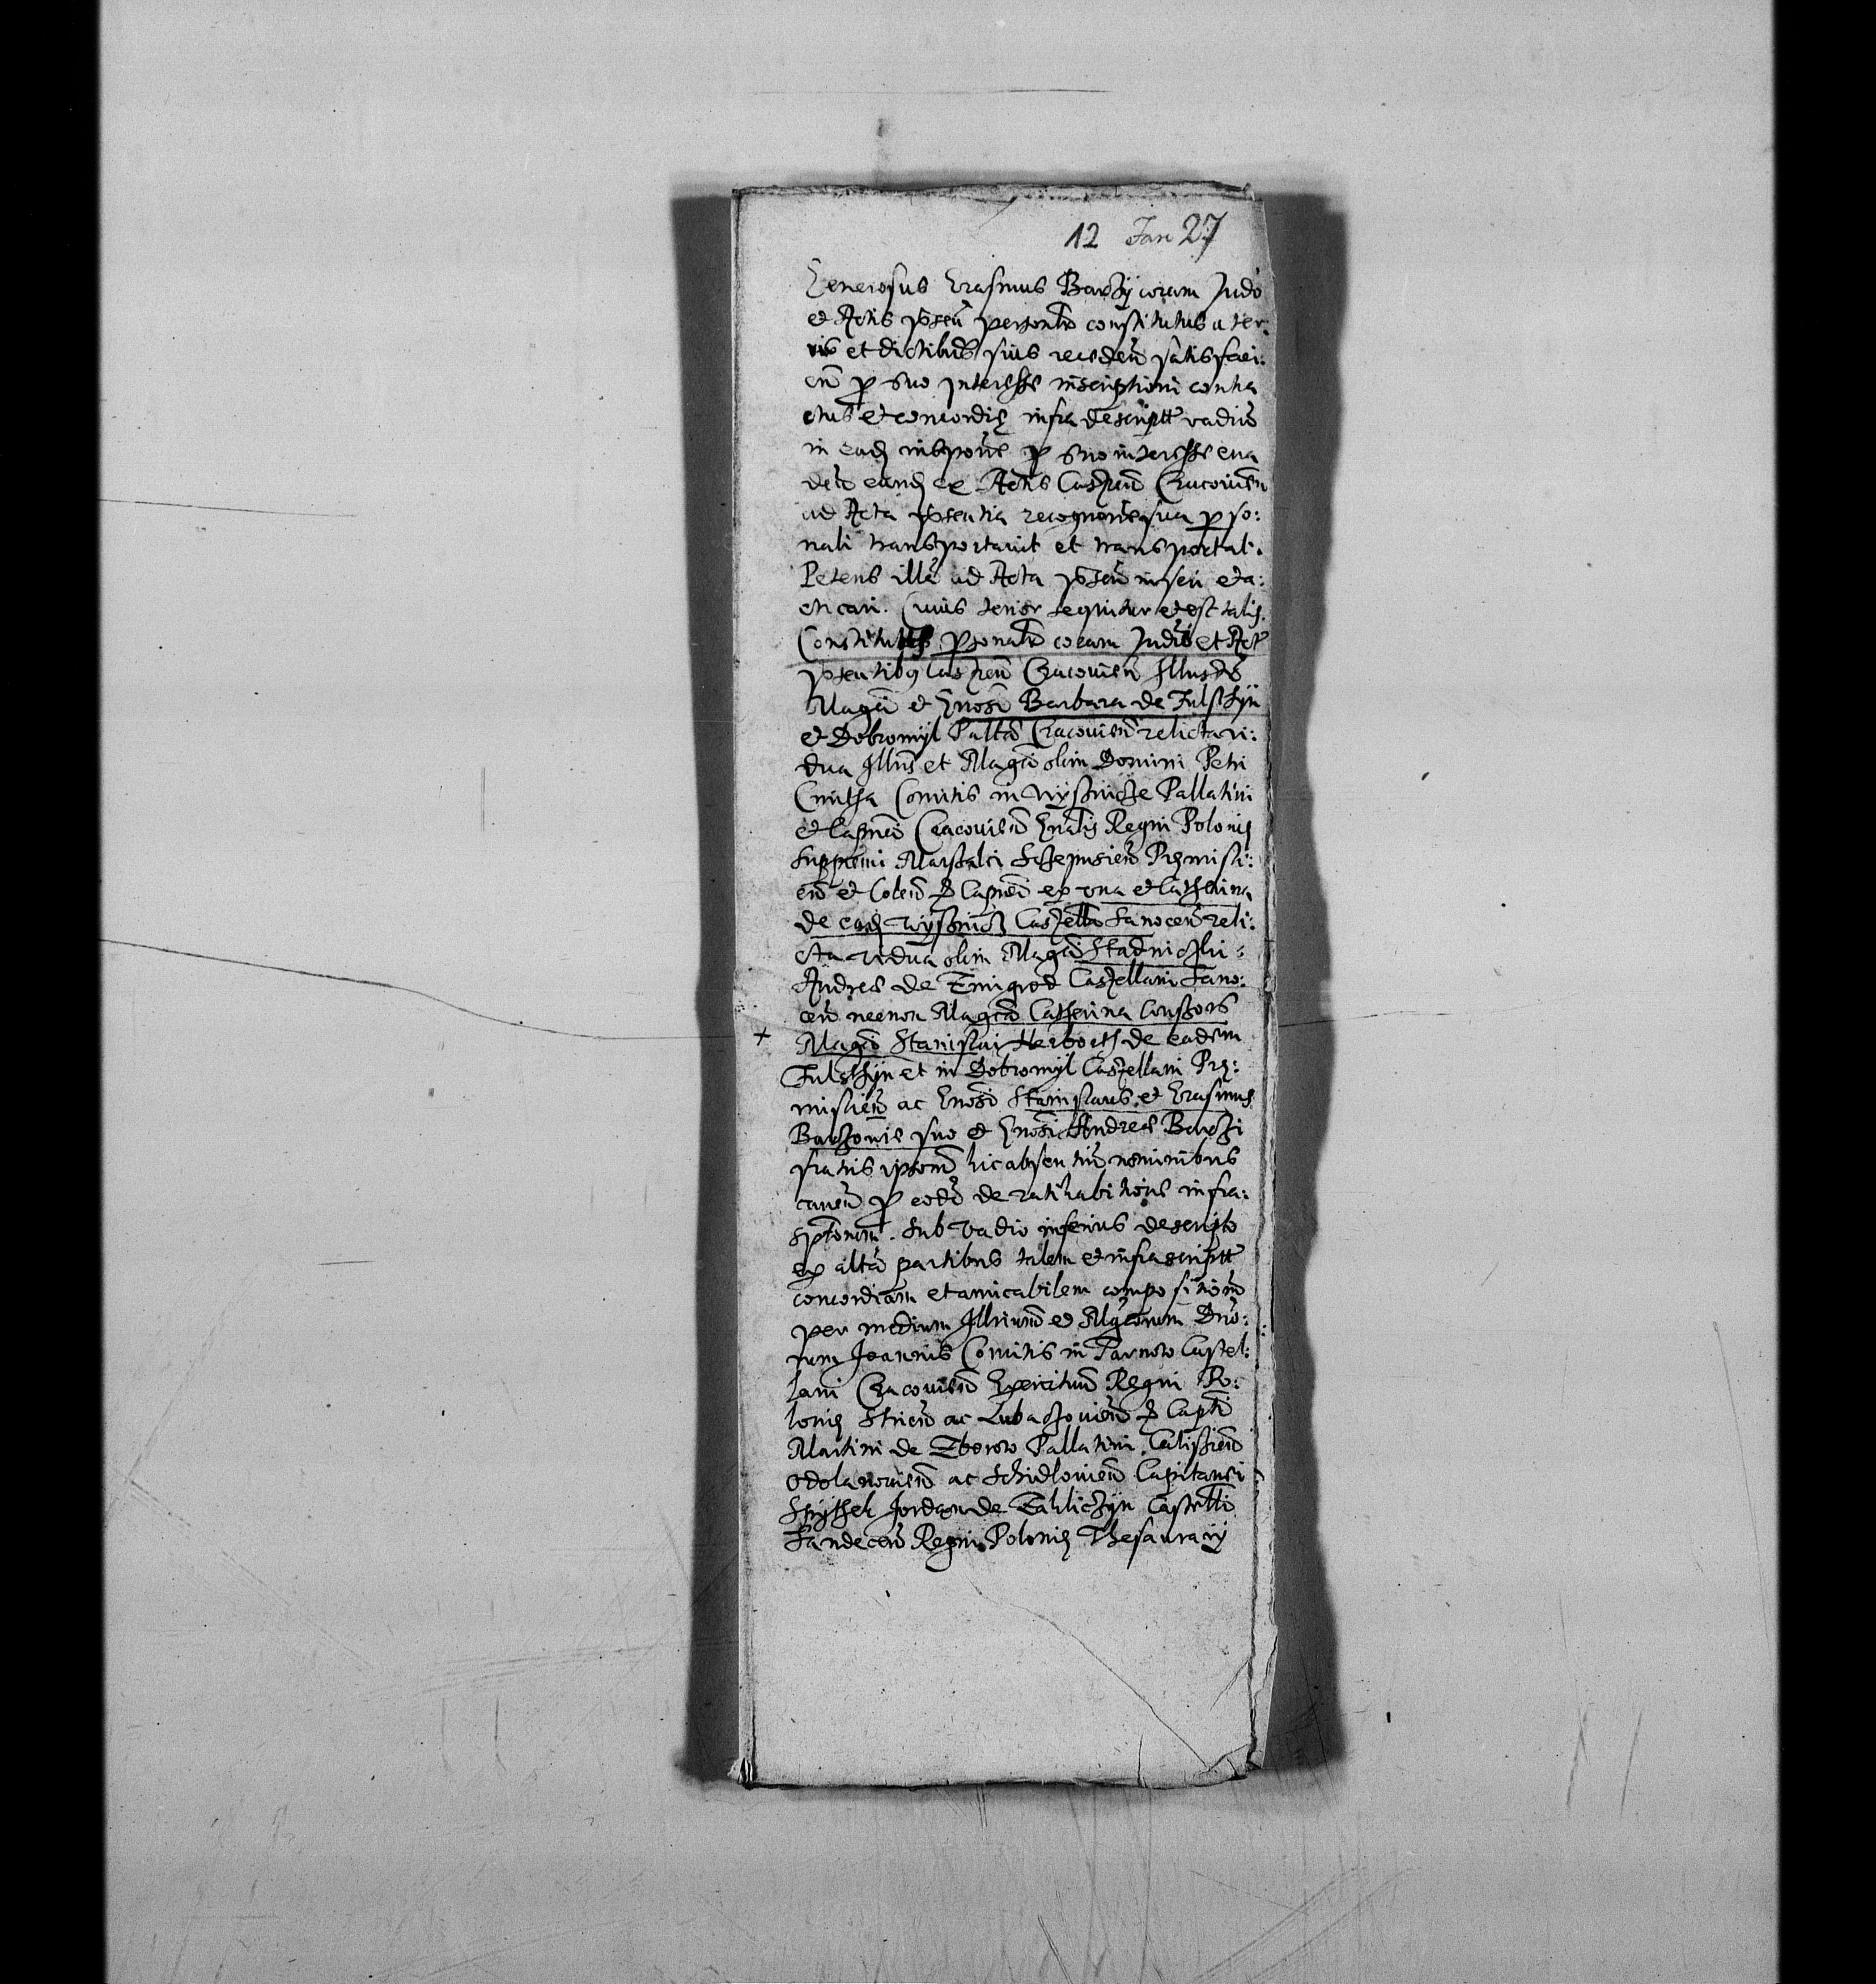 12 Jan 27
Generosus Erasmus Barzÿ coram Judõ
et Actis pñseñ personatr constitutus a ter:
ris et districtibus suis receden satisfaci:
en p suo Interesse inscriptioni contra
ctus et concordię infra descriptt vadiis
in eadę interpoñs p suo interesse eva
deñ eandę ex Actis Castreñ Cracovieñ
ad Acta pñsentia recognoñe sua p so:
nali transportavit et transportat.
Petens illã ad Acta pñseñ inseri et a:
cticari. Cuius tenor sequitur et est talis.
Constitutus psonatr coram Judiõ et Act
pñsentibus Castreñ Cracovieñ Illustris
Magcã et Gnosã Barbara de Fulsthÿn
et Dobromÿl Paltã Cracovieñ relicta vi:
dua Illris et Magci olim Domini Petri
Cmitha Comitis in Vÿsnicze Pallatini
et Capnei Cracovieñ Gnralis Regni Polonię
Supremi Marsalci Sczepusieñ Pręmisli:
eñ et Coleñ & Capnei ex una et Catherina
de eadę Wÿsnicz Castella Sanoceñ reli:
cta vidua olim Magci Stadniczki
Andreę de Zmigrod Castellani Sano:
ceñ necnon Magca Catherina Consors
+ Magci Stanislai Herborth de eadem
Fulsthÿn et in Dobromÿl Castellani Prę:
mislieñ ac Gnosi Stanislaus et Erasmus
Barzovie suo et Gnosi Andreę Barzi
fratris ipsorum hic absentiũ nominibus
caveñ p eodẽ de ratihabitione infra:
sptorum. Sub vadio inferius descripto
ex alta partibus talem et infrascriptt
concordiam et amicabilem compositionẽ
per medium Illrium et Mgcorum Dño:
rum Joannis Comitis in Tarnow Castel:
lani Cracovieñ Exercituũ Regni Po:
lonię Strieñ ac Lubaczovieñ & Capti
Martini de Zborow Pallatini Calisieñ
Odolanovieñ ac Schidlovieñ Capitanei
Spÿthek Jordan de Zakliczÿn Castelli
Sandeceñ Regni Polonię Thesaurarÿ